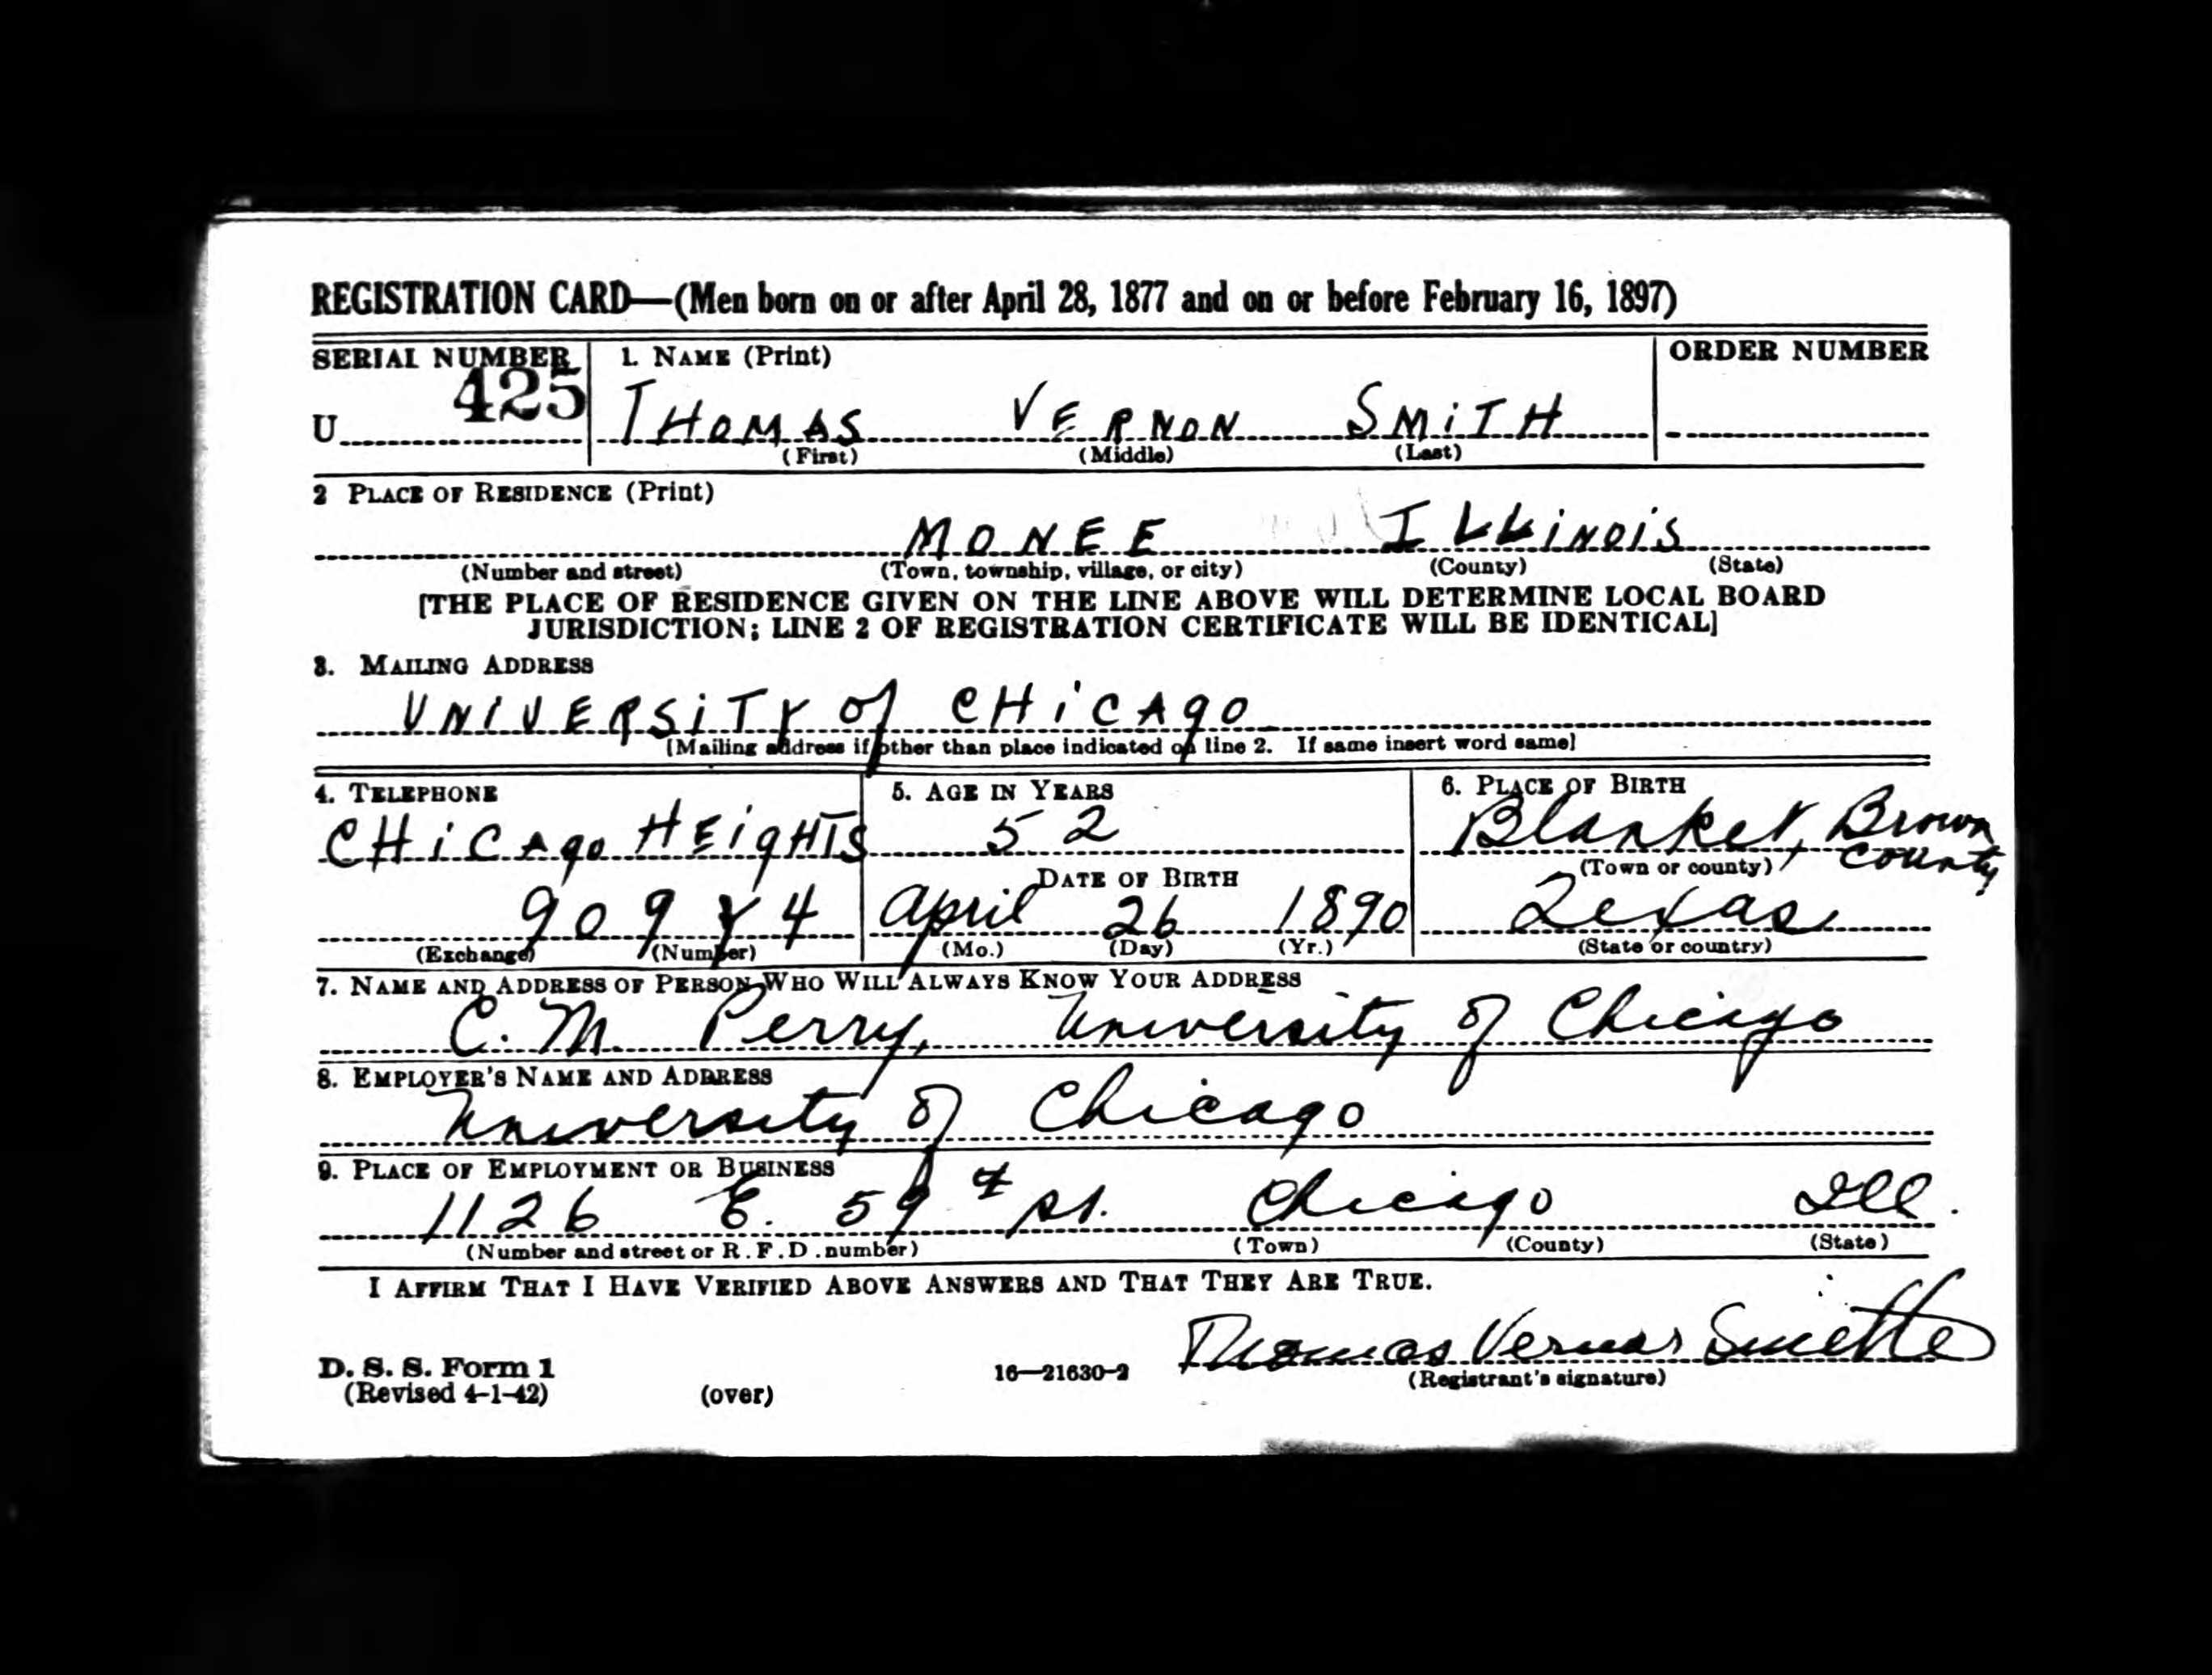 REGISTRATION CARD—(Men born on or after April 28, 1877 and on or before February 16, 1897)
SERIAL NUMBER 1. NAME (Print) ORDER NUMBER
U 425 THOMAS VERNON SMiTH
(First) (Middle) (Last)
2 PLACE OF RESIDENCE (Print)
MONEE ILLiNOiS
(Number and street) (Town, township, village, or city) (County) (State)
[THE PLACE OF RESIDENCE GIVEN ON THE LINE ABOVE WILL DETERMINE LOCAL BOARD
JURISDICTION; LINE 2 OF REGISTRATION CERTIFICATE WILL BE IDENTICAL]
3. MAILING ADDRESS
UNIVERSiTY of CHiCAgO
[Mailing address if other than place indicated on line 2. If same insert word same]
4. TELEPHONE 5. AGE IN YEARS 6. PLACE OF BIRTH
CHiCAgo HEigHTS 52 Blanket, Brown county
(Town or county)
DATE OF BIRTH
909 Y 4 April 26 1890 Texas
(Exchange) (Number) (Mo.) (Day) (Yr.) (State or country)
7. NAME AND ADDRESS OF PERSON WHO WILL ALWAYS KNOW YOUR ADDRESS
C. M. Perry, University of Chicago
8. EMPLOYER'S NAME AND ADDRESS
University of Chicago
9. PLACE OF EMPLOYMENT OR BUSINESS
1126 E. 59th St. Chicago Ill.
(Number and street or R.F.D. number) (Town) (County) (State)
I AFFIRM THAT I HAVE VERIFIED ABOVE ANSWERS AND THAT THEY ARE TRUE.
Thomas Vernor Smith
D. S. S. Form 1 16—21630-2 (Registrant's signature)
(Revised 4-1-42) (over)